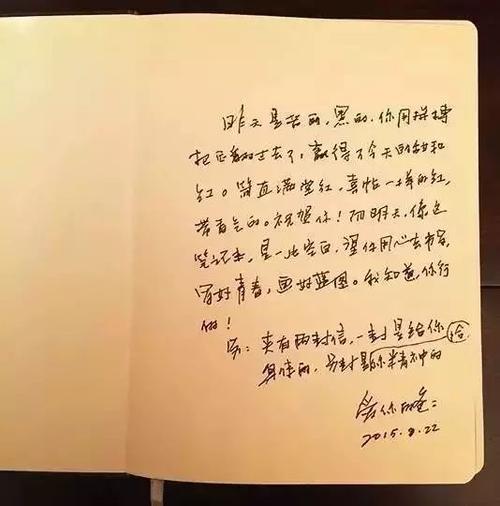 昨天是苦的，黑的，你用拼搏
把它翻过去了，赢得了今天的甜和
红。简直满堂红，真怕一样的红，
带着气的。祝贺你！而明天，像这
笔记本，是一片空白，望你用心去书写，
写好青春，画好蓝图。我知道，你行
的！
另：夹有两封信，一封是给你
身体的，另封是给你精神的
爱你的爸爸
2015.8.22